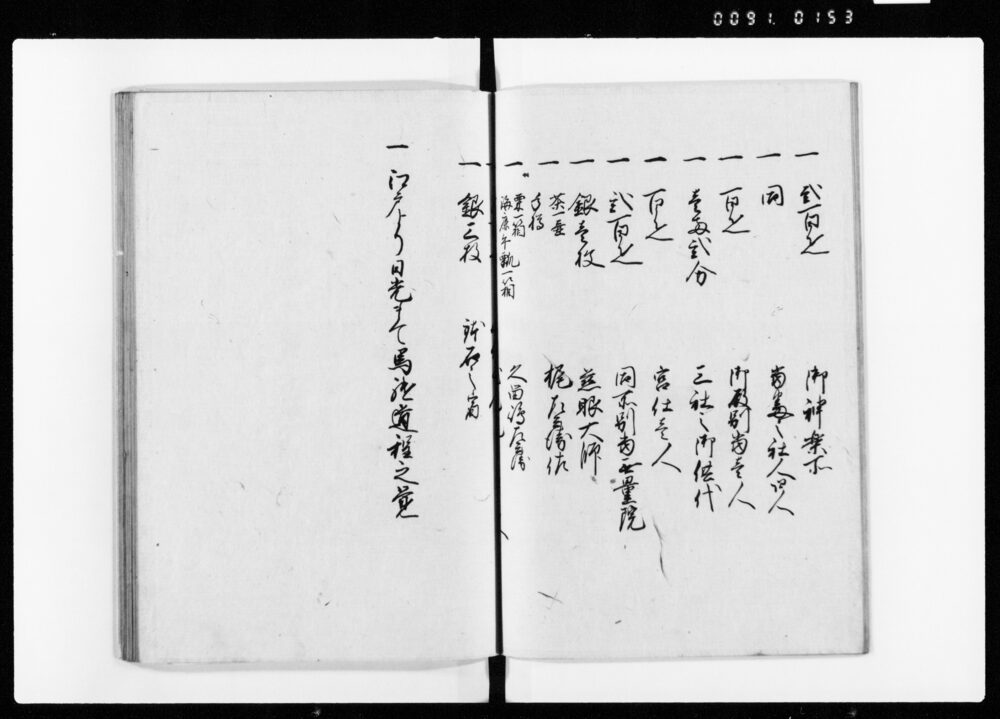 0091 0153
一 弐百疋 御神楽所
一 同 当番之社人四人
一 百疋 御殿別当壱人
一 壱両弐分 三社之御供代
一 百疋 宮仕壱人
一 弐百疋 同所別当無量院
一 銀壱枚 慈眼大師
一 茶一壺 梶左兵衛佐
手樽
一 粟一箱
一箱
一 銀三枚
一 江戸より日光まて馬継道程之覚